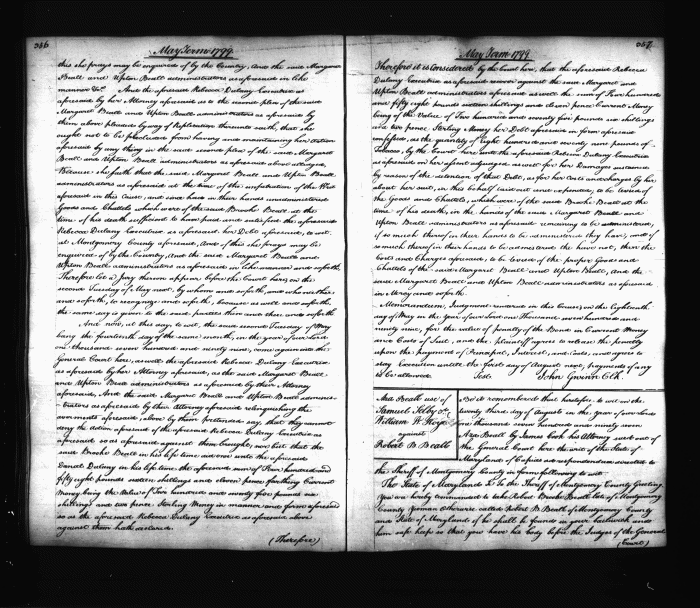 346
May Term 1799
this she prays may be enquired of by the Country, And the said Margaret
Beall and Upton Beall administrators as aforesaid in like
manner &c. And the aforesaid Rebecca Dulany Executrix as
aforesaid by her Attorney aforesaid as to the second plea of the said
Margaret Beall and Upton Beall administrators as aforesaid by
them above pleaded by way of Replication thereunto saith, that she
ought not to be precluded from having and maintaining her action
aforesaid by any thing in the said second plea of the said Margaret
Beall and Upton Beall administrators as aforesaid above alledged
Because she saith that the said Margaret Beall and Upton Beall
administrators as aforesaid at the time of the impetration of the Writ
aforesaid in this Cause, and since had in their hands unadministered
Goods and Chattels which were of the said Brooke Beall at the
time of his death sufficient to have paid and satisfied the aforesaid
Rebecca Dulany Executrix as aforesaid her Debt aforesaid, to wit,
at Montgomery County aforesaid, And of this she prays may be
enquired of by the Country, And the said Margaret Beall and
Upton Beall administrators as aforesaid in like manner and so forth.
Therefore let a Jury thereon appear before the Court here on the
second Tuesday of May next, by whom and so forth, and who neither
and so forth, to recognize and so forth, because as well and so forth,
the same day is given to the said parties then and there and so forth
And now, at this day to wit, the said second Tuesday of May
being the fourteenth day of the same month, in the year of our lord
one thousand seven hundred and ninety nine, come again into the
General Court here, as well the aforesaid Rebecca Dulany Executrix
as aforesaid by her Attorney aforesaid, as the said Margaret Beall
and Upton Beall administrators as aforesaid by their Attorney
aforesaid, And the said Margaret Beall and Upton Beall adminis-
-trators as aforesaid by their Attorney aforesaid relinquishing the
averments aforesaid above by them pretended say, that they cannot
deny the action aforesaid of the aforesaid Rebecca Dulany Executrix as
aforesaid so as aforesaid against them brought, nor but that the
said Brooke Beall in his life time did owe unto the aforesaid
Daniel Dulany in his life time the aforesaid sum of Four hundred and
fifty eight pounds sixteen shillings and eleven pence farthing Current
Money being the Value of Two hundred and seventy five pounds six
shillings and two pence Sterling Money in manner and form aforesaid
so as the aforesaid Rebecca Dulany Executrix as aforesaid above
against them hath declared.
(Therefore)
347
May Term 1799
Therefore it is considered by the Court here, that the aforesaid Rebecca
Dulany Executrix as aforesaid recover against the said Margaret and
Upton Beall administrators aforesaid as well the sum of Four hundred
and fifty eight pounds sixteen shillings and eleven pence Current Money
being of the Value of Two hundred and seventy five pounds six shillings
and two pence Sterling Money her Debt aforesaid in form aforesaid
confessed, as the quantity of Eight hundred and seventy nine pounds of
Tobacco, by the Court here unto the aforesaid Rebecca Dulany Executrix
as aforesaid on her assent adjudged as well for her Damages sustained
by reason of the detention of that Debt, as for her costs and charges by her
about her suit, in this behalf laid out and expended, to be levied of
the Goods and Chattels, which were of the said Brooke Beall at the
time of his death, in the hands of the said Margaret Beall and
Upton Beall administrators as aforesaid remaining to be administered,
if so much thereof in their hands to be administered they have, and if
so much thereof in their hands to be administered the have not, then the
Costs and Charges aforesaid, to be levied of the proper Goods and
Chattels of the said Margaret Beall and Upton Beall, And the
said Margaret Beall and Upton Beall administrators as aforesaid
in Mercy and so forth.
Memorandum, Judgment rendered in this Cause on the Eighteenth
day of May in the Year of our Lord one Thousand seven hundred and
ninety nine, for the value of penalty of the Bond in Current Money
and Costs of Suit, and the plaintiff agrees to release the penalty
upon the payment of Principal, Interest, and Costs, and agrees to
stay Execution untill the first day of August next, payments if any
to be allowed. Test. John Gwinn Clk.
Aza Beall use of
Samuel Selby &c.
William W. Hoye
against
Robert B. Beall
Be it remembered that heretofore, to wit on the
twenty third day of August in the Year of our Lord
one thousand seven hundred and ninety seven
Aza Beall by James Cook his Attorney sued out of
the General Court here the writ of the State of
Maryland of Capias ad respondendum directed to
the Sheriff of Montgomery County in form following to wit.
The State of Maryland Ss. to the Sheriff of Montgomery County Greeting
You are hereby commanded to take Robert Brooke Beall late of Montgomery
County Yeoman otherwise called Robert B. Beall of Montgomery County
and State of Maryland if he shall be found in your bailiwick and
him safe keep so that you have his body before the Judges of the General
(Court)